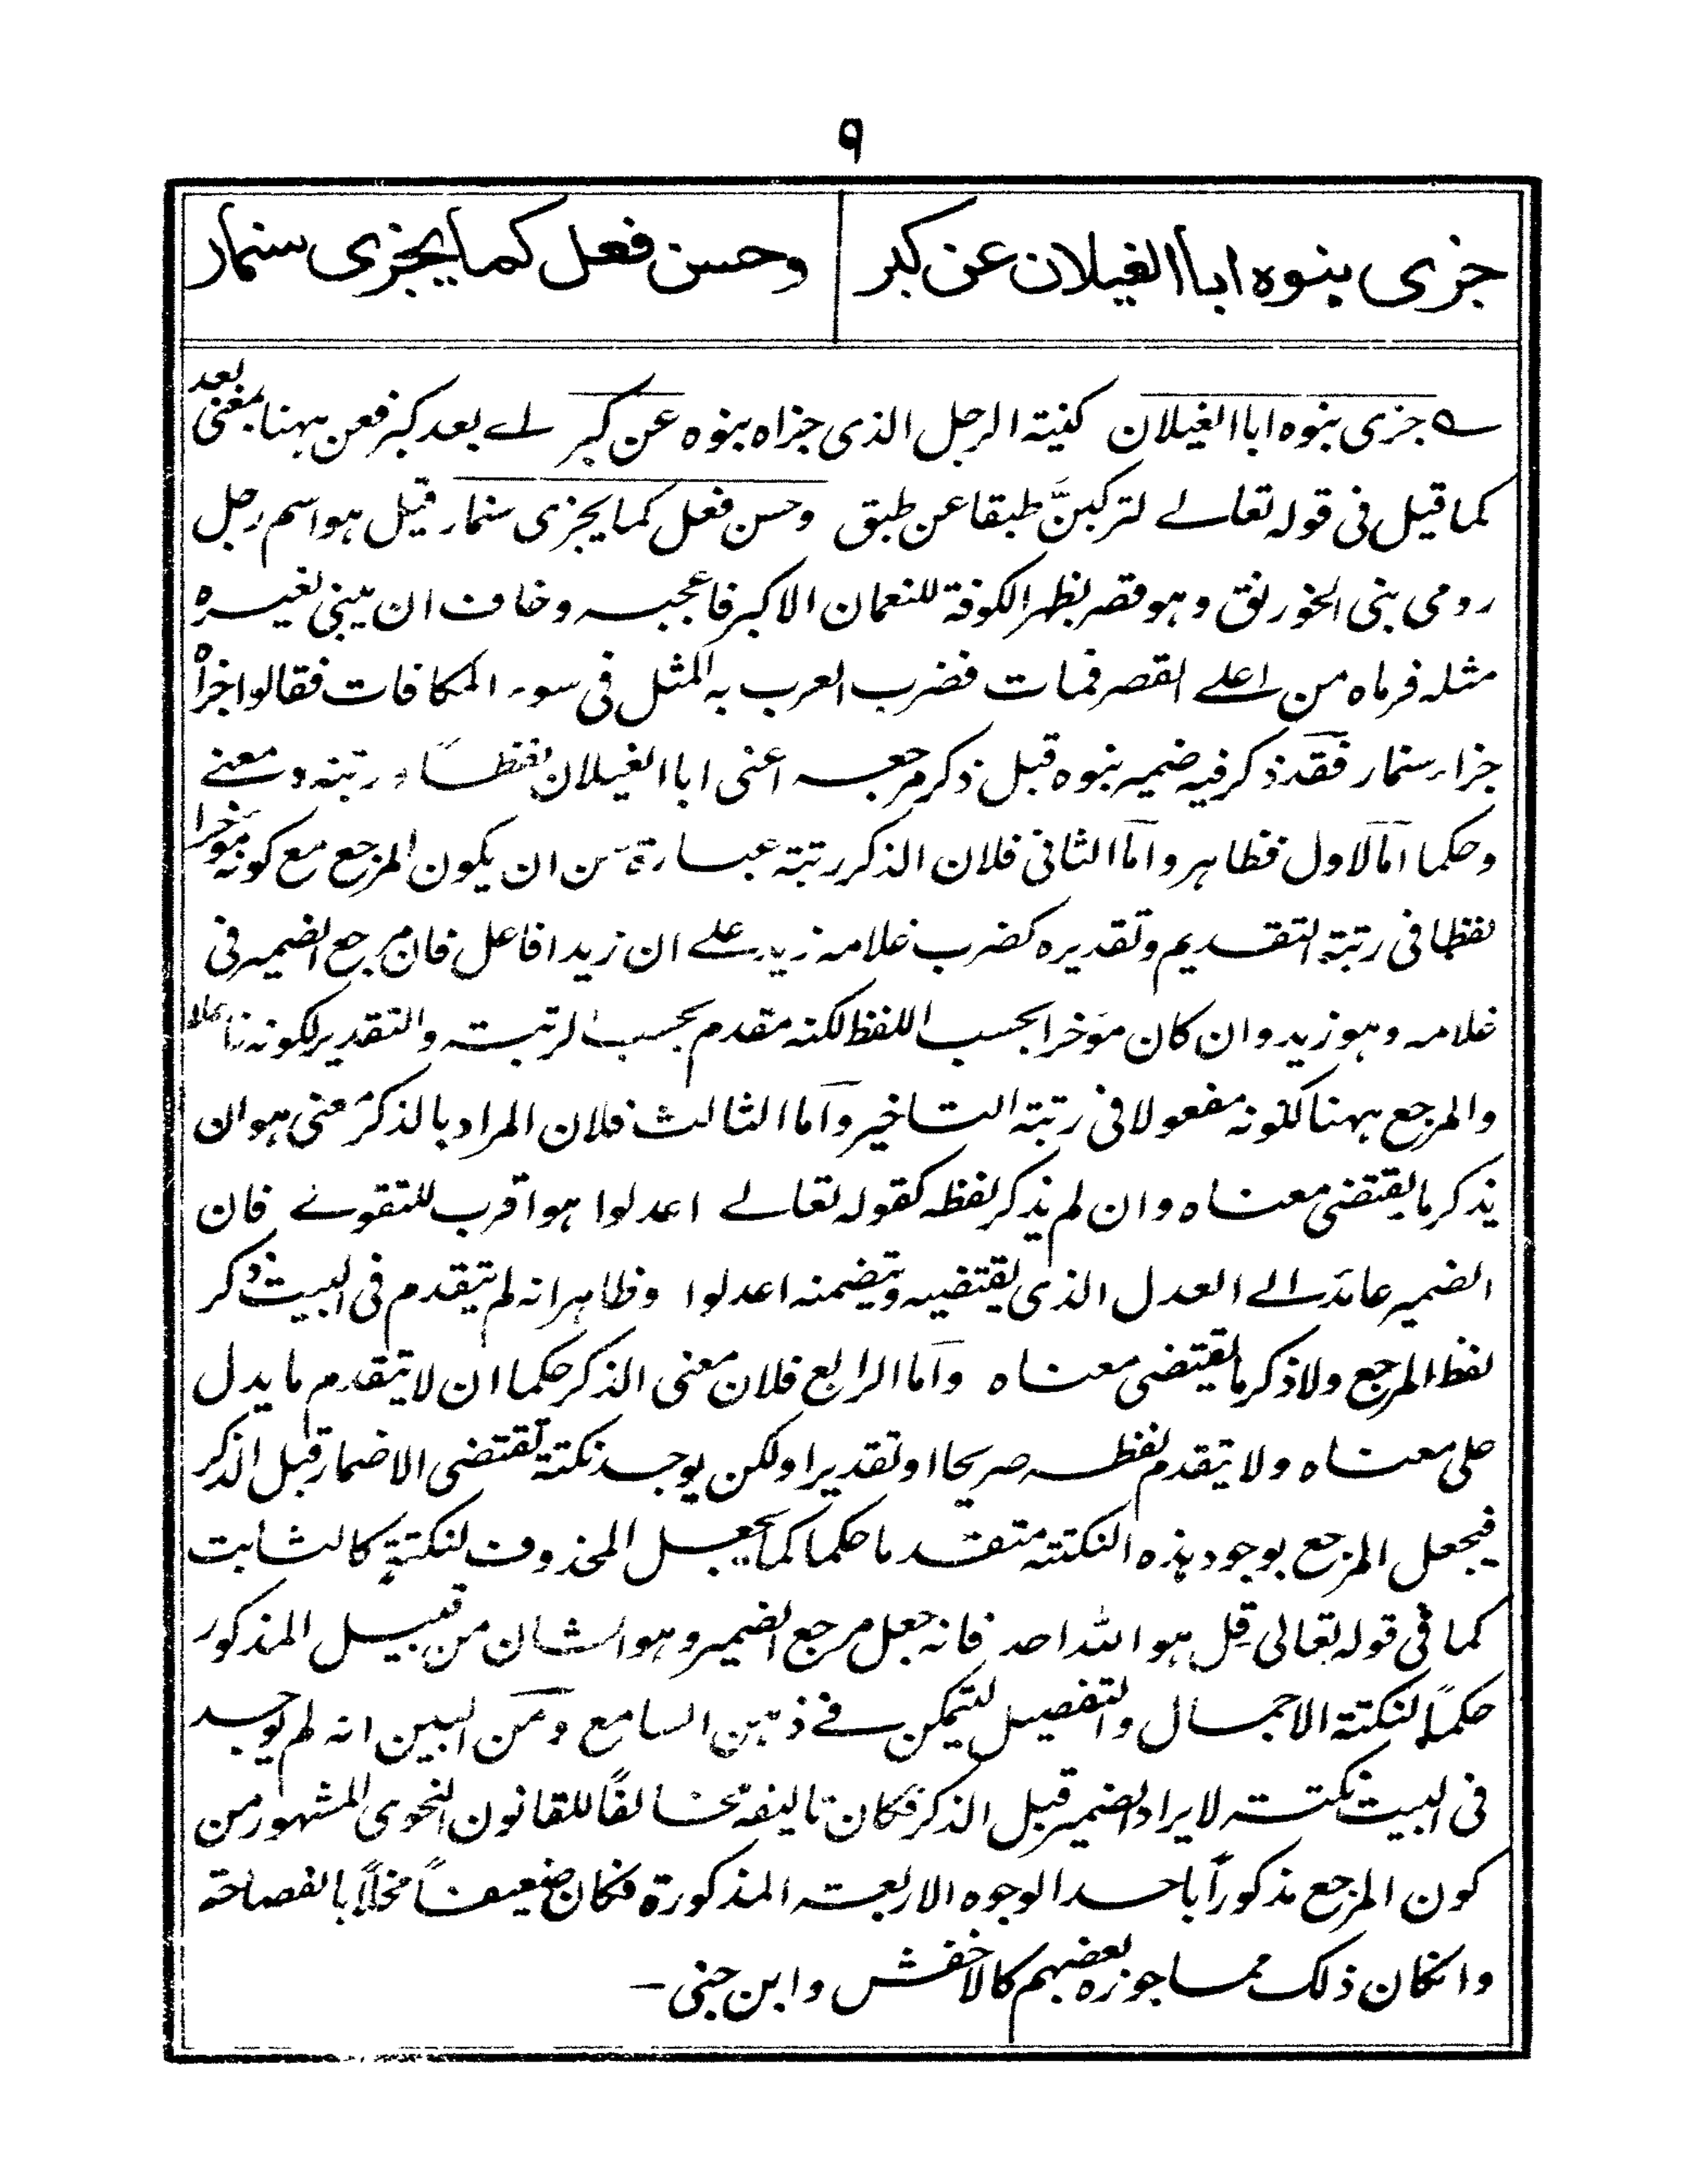 ٩
جزى بنوه ابا الغيلان عن كبر وحسن فعل كما يجزى سنمار
جزى بنوه ابا الغيلان كنيته الرجل الذى جزاه بنوه عن كبر اے بعد كبر فعن ههنا بمعنى بعد
كما قيل فى قوله تعالے لتركبنَّ طبقا عن طبق وحسن فعل كما يجزى سنمار قيل هو اسم رجل
رومى بنى الخورنق وهو قصر بظهر الكوفة للنعمان الاكبر فاعجبه وخاف ان يبنى لغيره
مثله فرماه من اعلے القصر فمات فضرب العرب به المثل فى سوء المكافات فقالوا جزاه
جزاء سنمار فقد ذكر فيه ضمير بنوه قبل ذكر مرجعه اعنى ابا الغيلان لفظاً ورتبته ومعنے
وحكما اما لاول فظاهر واما الثانى فلان الذكر رتبته عبارة عن ان يكون المرجع مع كونه مؤخرا
لفظا فى رتبة التقديم وتقديره كضرب غلامه زيد علے ان زيدا فاعل فان مرجع الضمير فى
غلامه وهو زيد وان كان مؤخرا بحسب اللفظ لكنه مقدم بحسب الرتبته والتقدير لكونه فاعلا
والمرجع ههنا لكونه مفعولا فى رتبة التاخير واما الثالث فلان المراد بالذكر معنى هو ان
يذكر ما يقتضى معناه وان لم يذكر لفظه كقوله تعالے اعدلوا هو اقرب للتقوے فان
الضمير عائد الے العدل الذى يقتضيه ويتضمنه اعدلوا وظاهر انه لم يتقدم فى البيت ذكر
لفظ المرجع ولا ذكر ما يقتضى معناه واما الرابع فلان معنى الذكر حكما ان لا يتقدم ما يدل
على معناه ولا يتقدم لفظه صريحا او تقديرا ولكن يوجد نكتة تقتضى الاضمار قبل الذكر
فيجعل المرجع بوجود هذه النكتته متقدما حكما كما يجعل المحذوف لنكتةٍ كالثابت
كما فى قوله تعالى قل هو الله احد فانه جعل مرجع الضمير وهو الشان من قبيل المذكور
حكماً لنكتة الاجمال والتفصيل لتيمكن فے ذهن السامع ومن البين انه لم يوجد
فى البيت نكتته لايراد الضمير قبل الذكر فكان تاليفه مخالفاً للقانون النحوى المشهور من
كون المرجع مذكوراً باحد الوجوه الاربعته المذكورة فكان ضعيفاً مخلاً بالفصاحته
وانكان ذلك مما جوزه بعضهم كالاخفش وابن جنى –